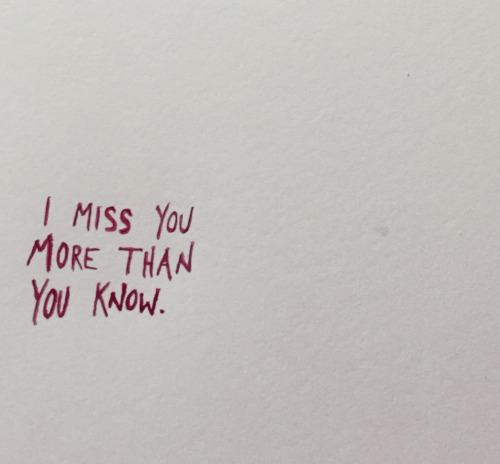 I MISS YOU
MORE THAN
YOU KNOW.